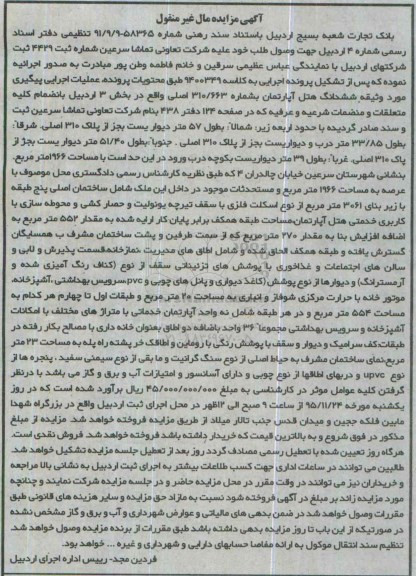 آگهی مزایده مال غیر منقول
بانک تجارت شعبه بسیج اردبیل باستناد سند رهنی شماره ۵۸۳۶۵-۹۱/۹/۹ تنظیمی دفتر اسناد
رسمی شماره ۴ اردبیل جهت وصول طلب خود علیه شرکت تعاونی تماشا سرعین شماره ثبت ۴۴۲۹ ثبت
شرکتهای اردبیل با نمایندگی عباس عظیمی سرقین و خانم فاطمه وطن پور مبادرت به صدور اجرائیه
نموده که پس از تشکیل پرونده اجرایی به کلاسه ۹۴۰۰۳۴۹ طبق محتویات پرونده، عملیات اجرایی پیگیری
مورد وثیقه ششدانگ هتل آپارتمان بشماره ۳۱۰/۶۶۳ اصلی واقع در بخش ۳ اردبیل بانضمام کلیه
متعلقات و منضمات شرعیه و عرفیه که در صفحه ۱۲۴ دفتر ۴۳۸ بنام شرکت تعاونی تماشا سرعین ثبت
و سند صادر گردیده با حدود اربعه زیر: شمالا: بطول ۵۷ متر دیوار یست بجز از پلاک ۳۱۰ اصلی. شرقا:
بطول ۳۳/۸۵ متر درب و دیواریست بجز از پلاک ۳۱۰ اصلی. جنوبا: بطول ۵۱/۴۰ متر دیوار یست بجز از
پلاک ۳۱۰ اصلی. غربا: بطول ۳۹ متر دیواریست بکوچه درب ورود در این حد است با مساحت ۱۹۶۶متر مربع.
بنشانی شهرستان سرعین خیابان چالدران ۴ که طبق نظریه کارشناس رسمی دادگستری محل موصوف با
عرصه به مساحت ۱۹۶۶ متر مربع و مستحدثات موجود در داخل این ملک شامل ساختمان اصلی پنج طبقه
با زیر بنای ۳۰۶۱ متر مربع از نوع اسکلت فلزی با سقف تیرچه یونولیت و حصار کشی و محوطه سازی با
کاربری خدمتی هتل آپارتمان،مساحت طبقه همکف برابر پایان کار ارایه شده به مقدار ۵۵۲ متر مربع به
اضافه افزایش بنا به مقدار ۲۷۰ متر مربع که از سمت طرفین و پشت ساختمان مشرف ب همسایگان
گسترش یافته و طبقه همکف الحاق شده و شامل اطاق های مدیریت ،نمازخانه،قسمت پذیرش و لابی و
سالن های اجتماعات و غذاخوری با پوشش های تزئیناتی سقف از نوع (کناف رنگ آمیزی شده و
آرمسترانگ) و دیوارها از نوع پوشش (کاغذ دیواری و پانل های چوبی و pvc،سرویس بهداشتی ،آشپزخانه،
موتور خانه با حرارت مرکزی شوفاژ و انباری به مساحت ۲۰ متر مربع و طبقات اول تا چهارم هر کدام به
مساحت ۵۵۴ متر مربع و در هر طبقه شامل نه واحد آپارتمان خدماتی با متراژ های مختلف با امکانات
آشپزخانه و سرویس بهداشتی مجموعا ۳۶ واحد باضافه دو اطاق بعنوان خانه داری با مصالح بکار رفته در
طبقات:کف سرامیک و دیوار و سقف با پوشش رنگی با رومالین و اطاقک خر پشته راه پله به مساحت ۲۳ متر
مربع،نمای ساختمان مشرف به حیاط اصلی از نوع سنگ گرانیت و ما بقی از نوع سیمنی سفید . پنجره ها از
نوع upvc و دربهای اطاقها از نوع چوبی و دارای آسانسور و امتیازات آب و برق و گاز می باشد با درنظر
گرفتن کلیه عوامل موثر در کارشناسی به مبلغ ۴۵/۰۰۰/۰۰۰/۰۰۰ ریال برآورد شده است که در روز
یکشنبه مورخه ۹۵/۱۱/۲۴ از ساعت ۹ صبح الی ۱۲ظهر در محل اجرای ثبت اردبیل واقع در بزرگراه شهدا
مابین فلکه ججین و میدان قدس جنب تالار میلاد از طریق مزایده فروخته خواهد شد. مزایده از مبلغ
مذکور در فوق شروع و به بالاترین قیمت که خریدار داشته باشد فروخته خواهد شد. فروش نقدی است.
هرگاه روز تعیین شده با تعطیل رسمی مصادف گردد روز بعد از تعطیل جلسه مزایده تشکیل خواهد شد.
طالبین می توانند در ساعات اداری جهت کسب طلاعات بیشتر به اجرای ثبت اردبیل به نشانی بالا مراجعه
و خریداران نیز می توانند در وقت مقرر در محل مزایده حاضر و در جلسه مزایده شرکت نمایند و چنانچه
مورد مزایده زائد بر مبلغ در آگهی فروخته شود نسبت به مازاد حق مزایده و سایر هزینه های قانونی طبق
مقررات وصول خواهد شد در ضمن بدهی های مالیاتی و عوارض شهرداری و آب و برق و گاز مشخص نشده
در صورتیکه از این باب تا روز مزایده بدهی داشته باشد طبق مقررات از برنده مزایده وصول خواهد شد.
تنظیم سند انتقال موکول به ارائه مفاصا حسابهای دارایی و شهرداری و غیره ... خواهد بود.
فردین مجد- رییس اداره اجرای اردبیل